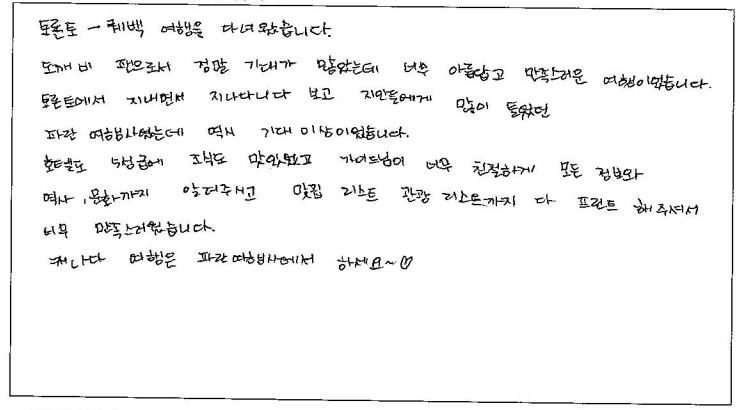 토론토 → 퀘백 여행을 다녀왔습니다.
도깨비 팬으로서 정말 기대가 많았는데 너무 아름답고 만족스러운 여행이었습니다.
토론토에서 지내면서 지나다니다 보고 지인들에게 많이 들었던
파란 여행사였는데 역시 기대 이상이었습니다.
호텔도 4성급에 조식도 맛있었고 가이드님이 너무 친절하게 모든 정보와
역사, 문화까지 알려주시고 맛집 리스트 관광 리스트까지 다 프린트 해주셔서
너무 만족스러웠습니다.
캐나다 여행은 파란여행사에서 하세요~♡